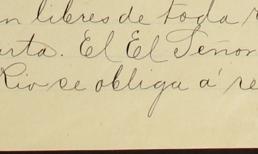 n libres de toda
arta. El El Señor
Rio se obliga á re